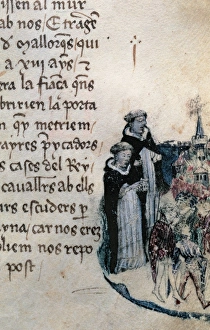 issen al mur
ab nos · E tragē
d mallorq̄s, qui
a xvj ayns · Et
era la fiança q̄ns
obririen la porta
n q̄ metriem
rayres preycadors
s cases del Rey
cauallrs ab ells
urs escuders p
rna, car nos erē
oliem nos repo
post